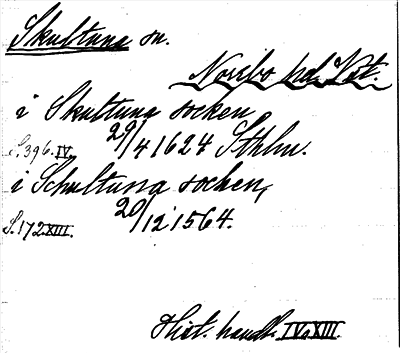 Skultuna sn.
Norrbo hd. Vst.
i Skultuna socken
S. 396. IV. 29/4 1624 Sthlm.
i Schultuna socken,
S. 172 XIII. 20/12 1564.
Hist. handl. IV o XIII.